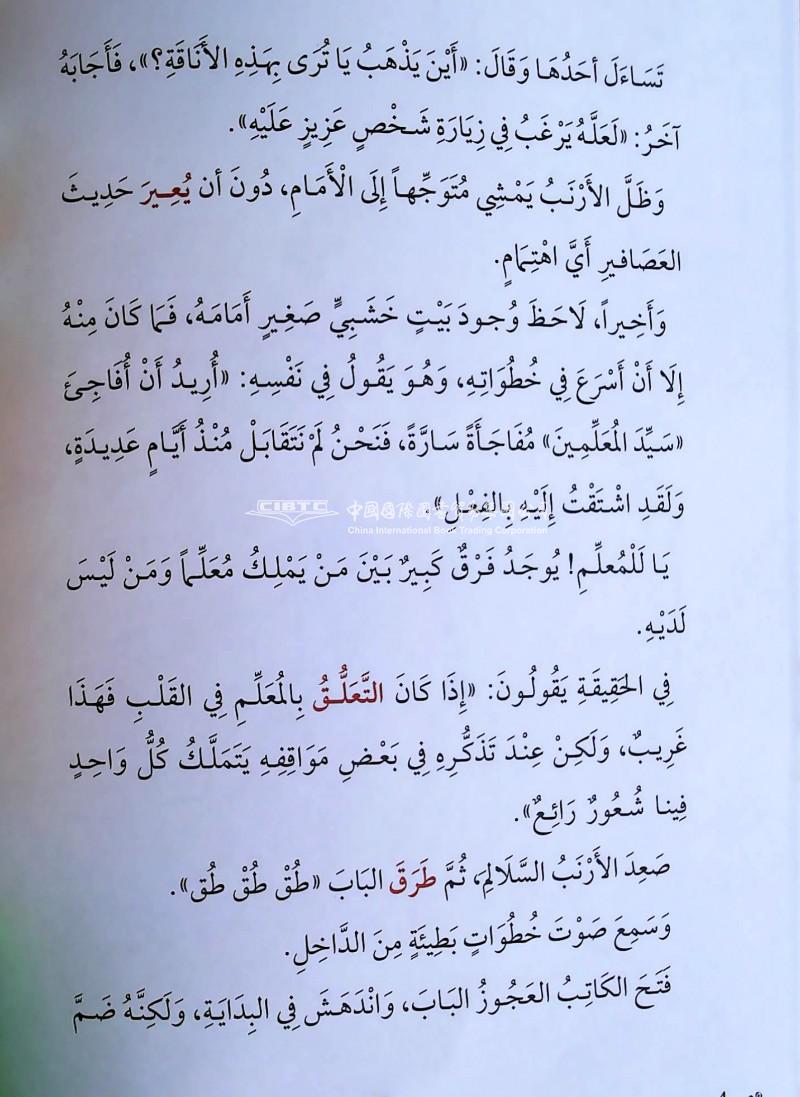 تَسَاءَلَ أحَدُهَا وَقَالَ: «أَيْنَ يَذْهَبُ يَا تُرَى بِهَذِهِ الأَنَاقَةِ؟»، فَأَجَابَهُ
آخَرُ: «لَعَلَّهُ يَرْغَبُ فِي زِيَارَةِ شَخْصٍ عَزِيزٍ عَلَيْهِ».
وَظَلَّ الأَرْنَبُ يَمْشِي مُتَوَجِّهاً إِلَى الْأَمَامِ، دُونَ أن يُعِيرَ حَدِيثَ
العَصَافيرِ أَيَّ اهْتِمَامٍ.
وَأَخِيراً، لَاحَظَ وُجودَ بَيْتٍ خَشَبِيٍّ صَغِيرٍ أَمَامَهُ، فَمَا كَانَ مِنْهُ
إِلَا أَنْ أَسْرَعَ فِي خُطُوَاتِهِ، وَهُوَ يَقُولُ فِي نَفْسِهِ: «أُرِيدُ أَنْ أُفَاجِئَ
«سَيِّدَ المُعَلِّمِينَ» مُفَاجَأَةً سَارَّةً، فَنَحْنُ لَمْ نَتَقَابَلْ مُنْذُ أَيَّامٍ عَدِيدَةٍ،
وَلَقَدِ اشْتَقْتُ إِلَيْهِ بِالفِعْلِ».
CIBTC 中國國際圖書貿易集團公司
China International Book Trading Corporation
يَا لَلْمُعلِّمِ! يُوجَدُ فَرْقٌ كَبِيرٌ بَيْنَ مَنْ يَمْلِكُ مُعَلِّماً وَمَنْ لَيْسَ
لَدَيْهِ.
فِي الحَقِيقَةِ يَقُولُونَ: «إِذَا كَانَ التَّعَلُّقُ بِالمُعَلِّمِ فِي القَلْبِ فَهَذَا
غَرِيبٌ، وَلَكِنْ عِنْدَ تَذَكُّرِهِ فِي بَعْضِ مَوَاقِفِهِ يَتَمَلَّكُ كُلُّ وَاحِدٍ
فِينا شُعُورٌ رَائِعٌ».
صَعِدَ الأَرْنَبُ السَّلَالِمَ، ثُمَّ طَرَقَ البَابَ «طُقْ طُقْ طُق».
وَسَمِعَ صَوْتَ خُطُوَاتٍ بَطِيئَةٍ مِنَ الدَّاخِلِ.
فَتَحَ الكَاتِبُ العَجُوزُ البَابَ، وَانْدَهَشَ فِي البِدَايَةِ، وَلَكِنَّهُ ضَمَّ